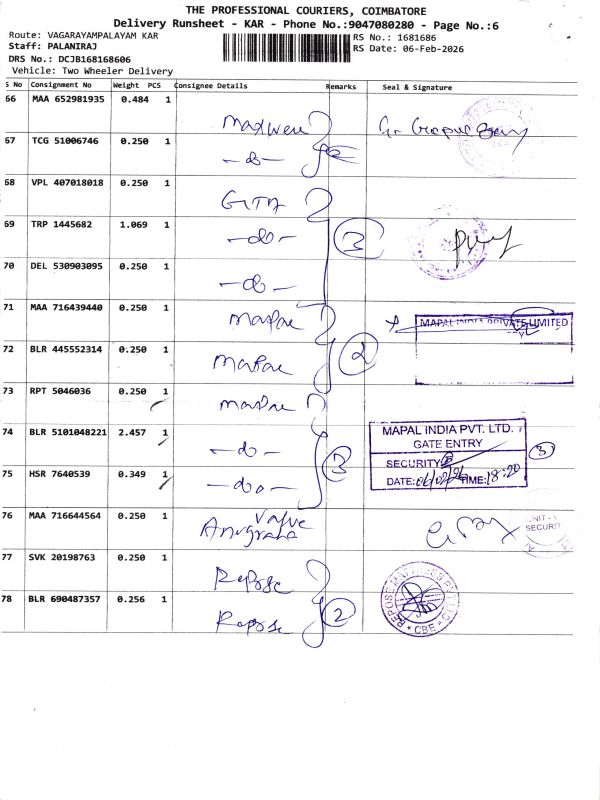 THE PROFESSIONAL COURIERS, COIMBATORE
Delivery Runsheet - KAR - Phone No.:9047080280 - Page No.:6
Route: VAGARAYAMPALAYAM KAR
RS No.: 1681686
Staff: PALANIRAJ
RS Date: 06-Feb-2026
DRS No.: DCJB168168606
Vehicle: Two Wheeler Delivery
S No Consignment No Weight PCS Consignee Details Remarks Seal & Signature
66 MAA 652981935 0.484 1
67 TCG 51006746 0.250 1
-do-
68 VPL 407018018 0.250 1
69 TRP 1445682 1.069 1
-do- 3
70 DEL 530903095 0.250 1
-do-
71 MAA 716439440 0.250 1 Mapal
MAPAL INDIA PRIVATE LIMITED
72 BLR 445552314 0.250 1 Mapal 2
73 RPT 5046036 0.250 1 Mapal
74 BLR 5101048221 2.457 1 -do- 3
MAPAL INDIA PVT. LTD.
GATE ENTRY
SECURITY
DATE: 06/02/26 TIME: 18:20
3
75 HSR 7640539 0.349 1 -do-
76 MAA 716644564 0.250 1 Valve
Anugraha
UNIT - V
SECURITY
77 SVK 20198763 0.250 1 Repose
78 BLR 690487357 0.256 1 Repose 2
REPOSE MATTRESS PVT LTD
* CBE *